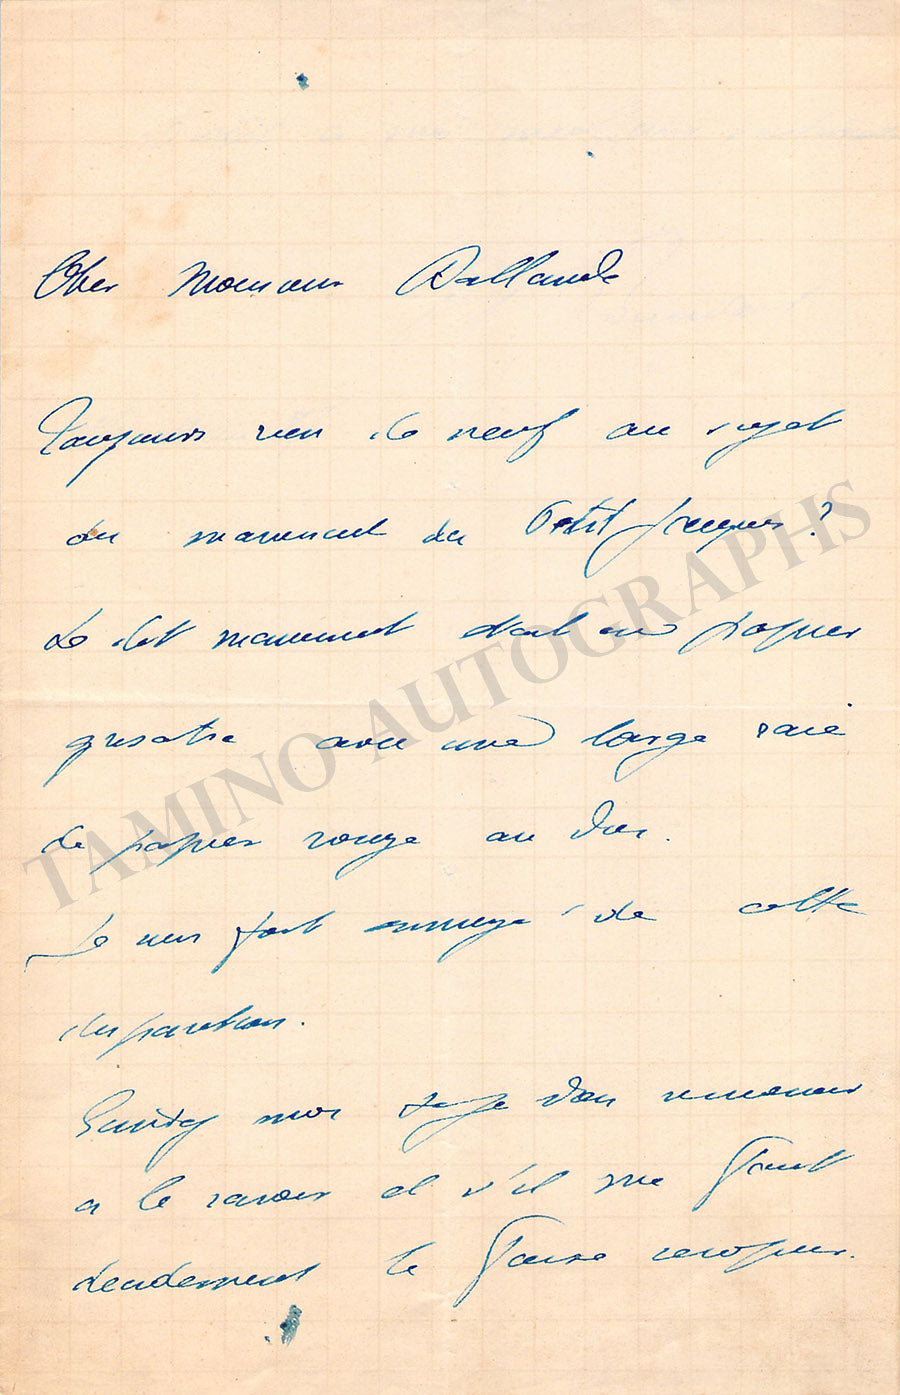 Cher Monsieur Ballande
Toujours rien de neuf au sujet
du manuscrit du Petit Jacques ?
Le dit manuscrit était en papier
grisatre avec une large raie
de papier rouge au dos.
Je suis fort ennuyé de cette
disparition.
moi
a le ravoir et s'il me faut
le faire recopier.
TAMINO AUTOGRAPHS